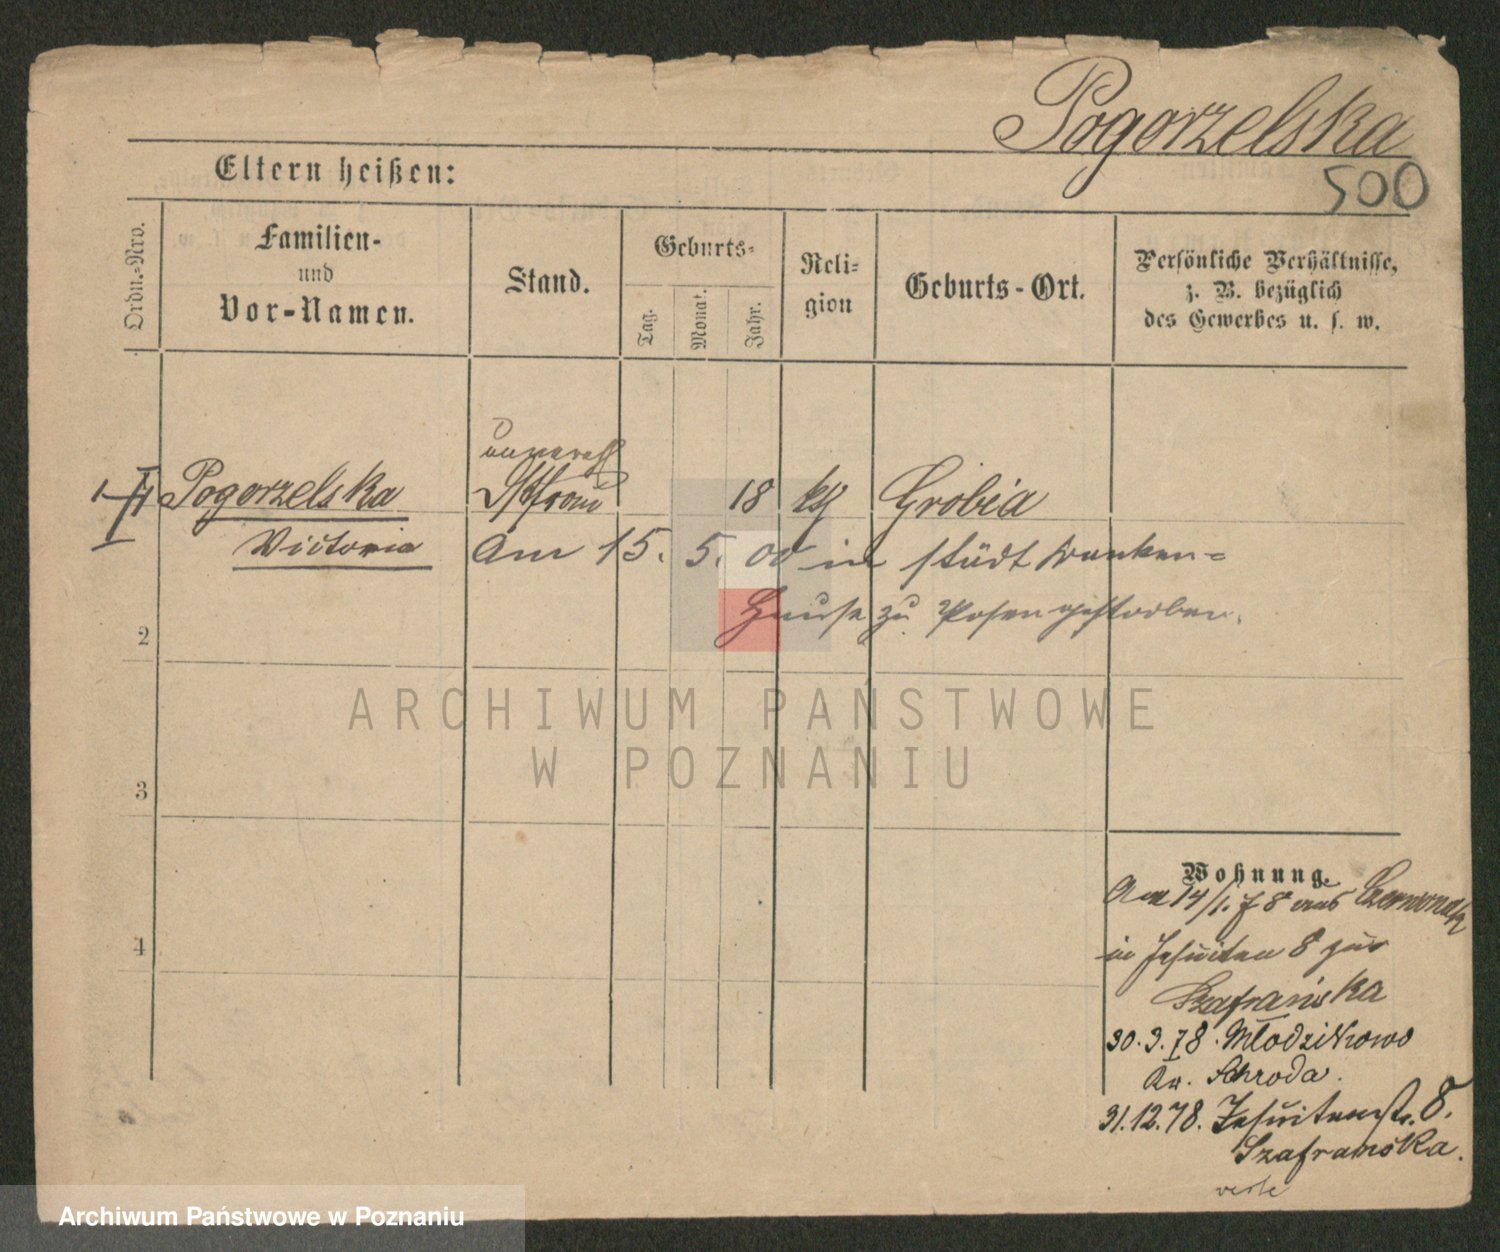 Pogorzelska
500
Eltern heißen:
Ordn.-Nro.
Familien-
und
Vor-Namen.
Stand.
Geburts-
Tag.
Monat.
Jahr.
Reli-
gion
Geburts-Ort.
Persönliche Verhältnisse,
z. B. bezüglich
des Gewerbes u. s. w.
1 Pogorzelska 18 Grobia
Victoria Am 15. 5. 00 in städt Kranken-
Hause zu Posen gestorben.
2
ARCHIWUM PAŃSTWOWE
W POZNANIU
3
4
Wohnung.
Am 14/1. 78 aus
in Jesuiten 8 zur
Szafrańska
30.3.78. Młodzikowo
Kr. Schroda.
31.12.78. Jesuitenstr. 8.
Szafrańska.
verte
Archiwum Państwowe w Poznaniu